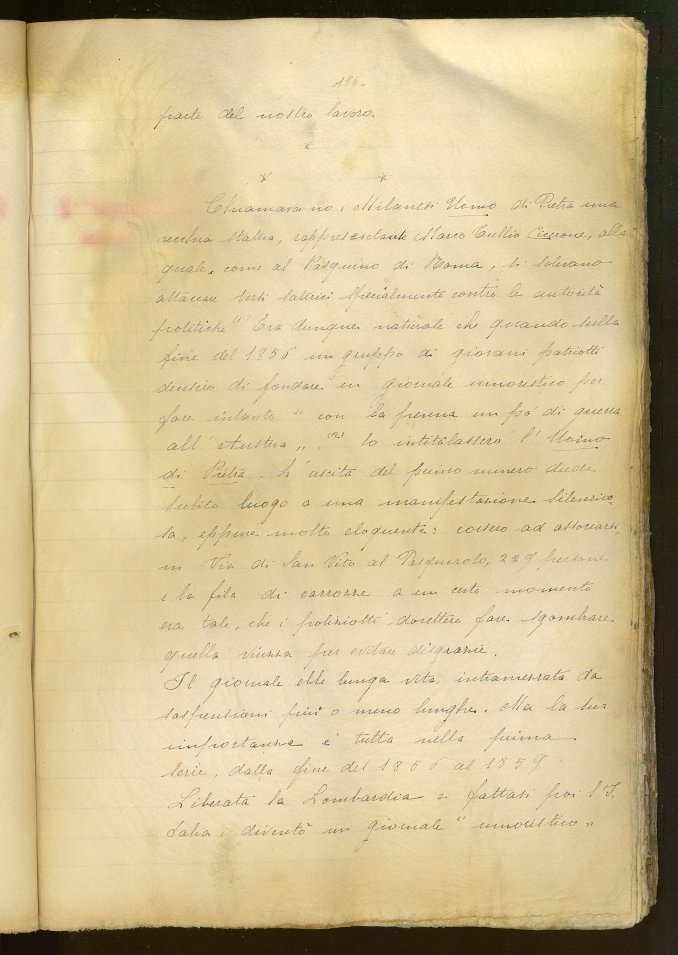 186.
parte del nostro lavoro.
*
* *
Chiamavano i Milanesi Uomo di Pietra una
vecchia statua, rappresentante Marco Tullio Cicerone, alla
quale, come al Pasquino di Roma, si solevano
attaccare versi satirici specialmente contro le autorità
politiche (1) Era dunque naturale che quando sulla
fine del 1856 un gruppo di giovani patriotti
decisero di fondare un giornale umoristico per
fare intanto " con la penna un pò di guerra
all'Austria „ (2) lo intitolassero l'Uomo
di Pietra. L'uscita del primo numero diede
subito luogo a una manifestazione silenzio-
sa, eppure molto eloquente: corsero ad associarsi,
in Via di San Vito al Pasquirolo, 229 persone
e la fila di carrozze a un certo momento
era tale, che i poliziotti dovettero fare sgombrare
quella viuzza per evitare disgrazie.
Il giornale ebbe lunga vita, intramezzata da
sospensioni più o meno lunghe. Ma la sua
importanza è tutta nella prima
serie, dalla fine del 1856 al 1859
Liberata la Lombardia e fattasi poi l'I-
talia, diventò un giornale " umoristico „